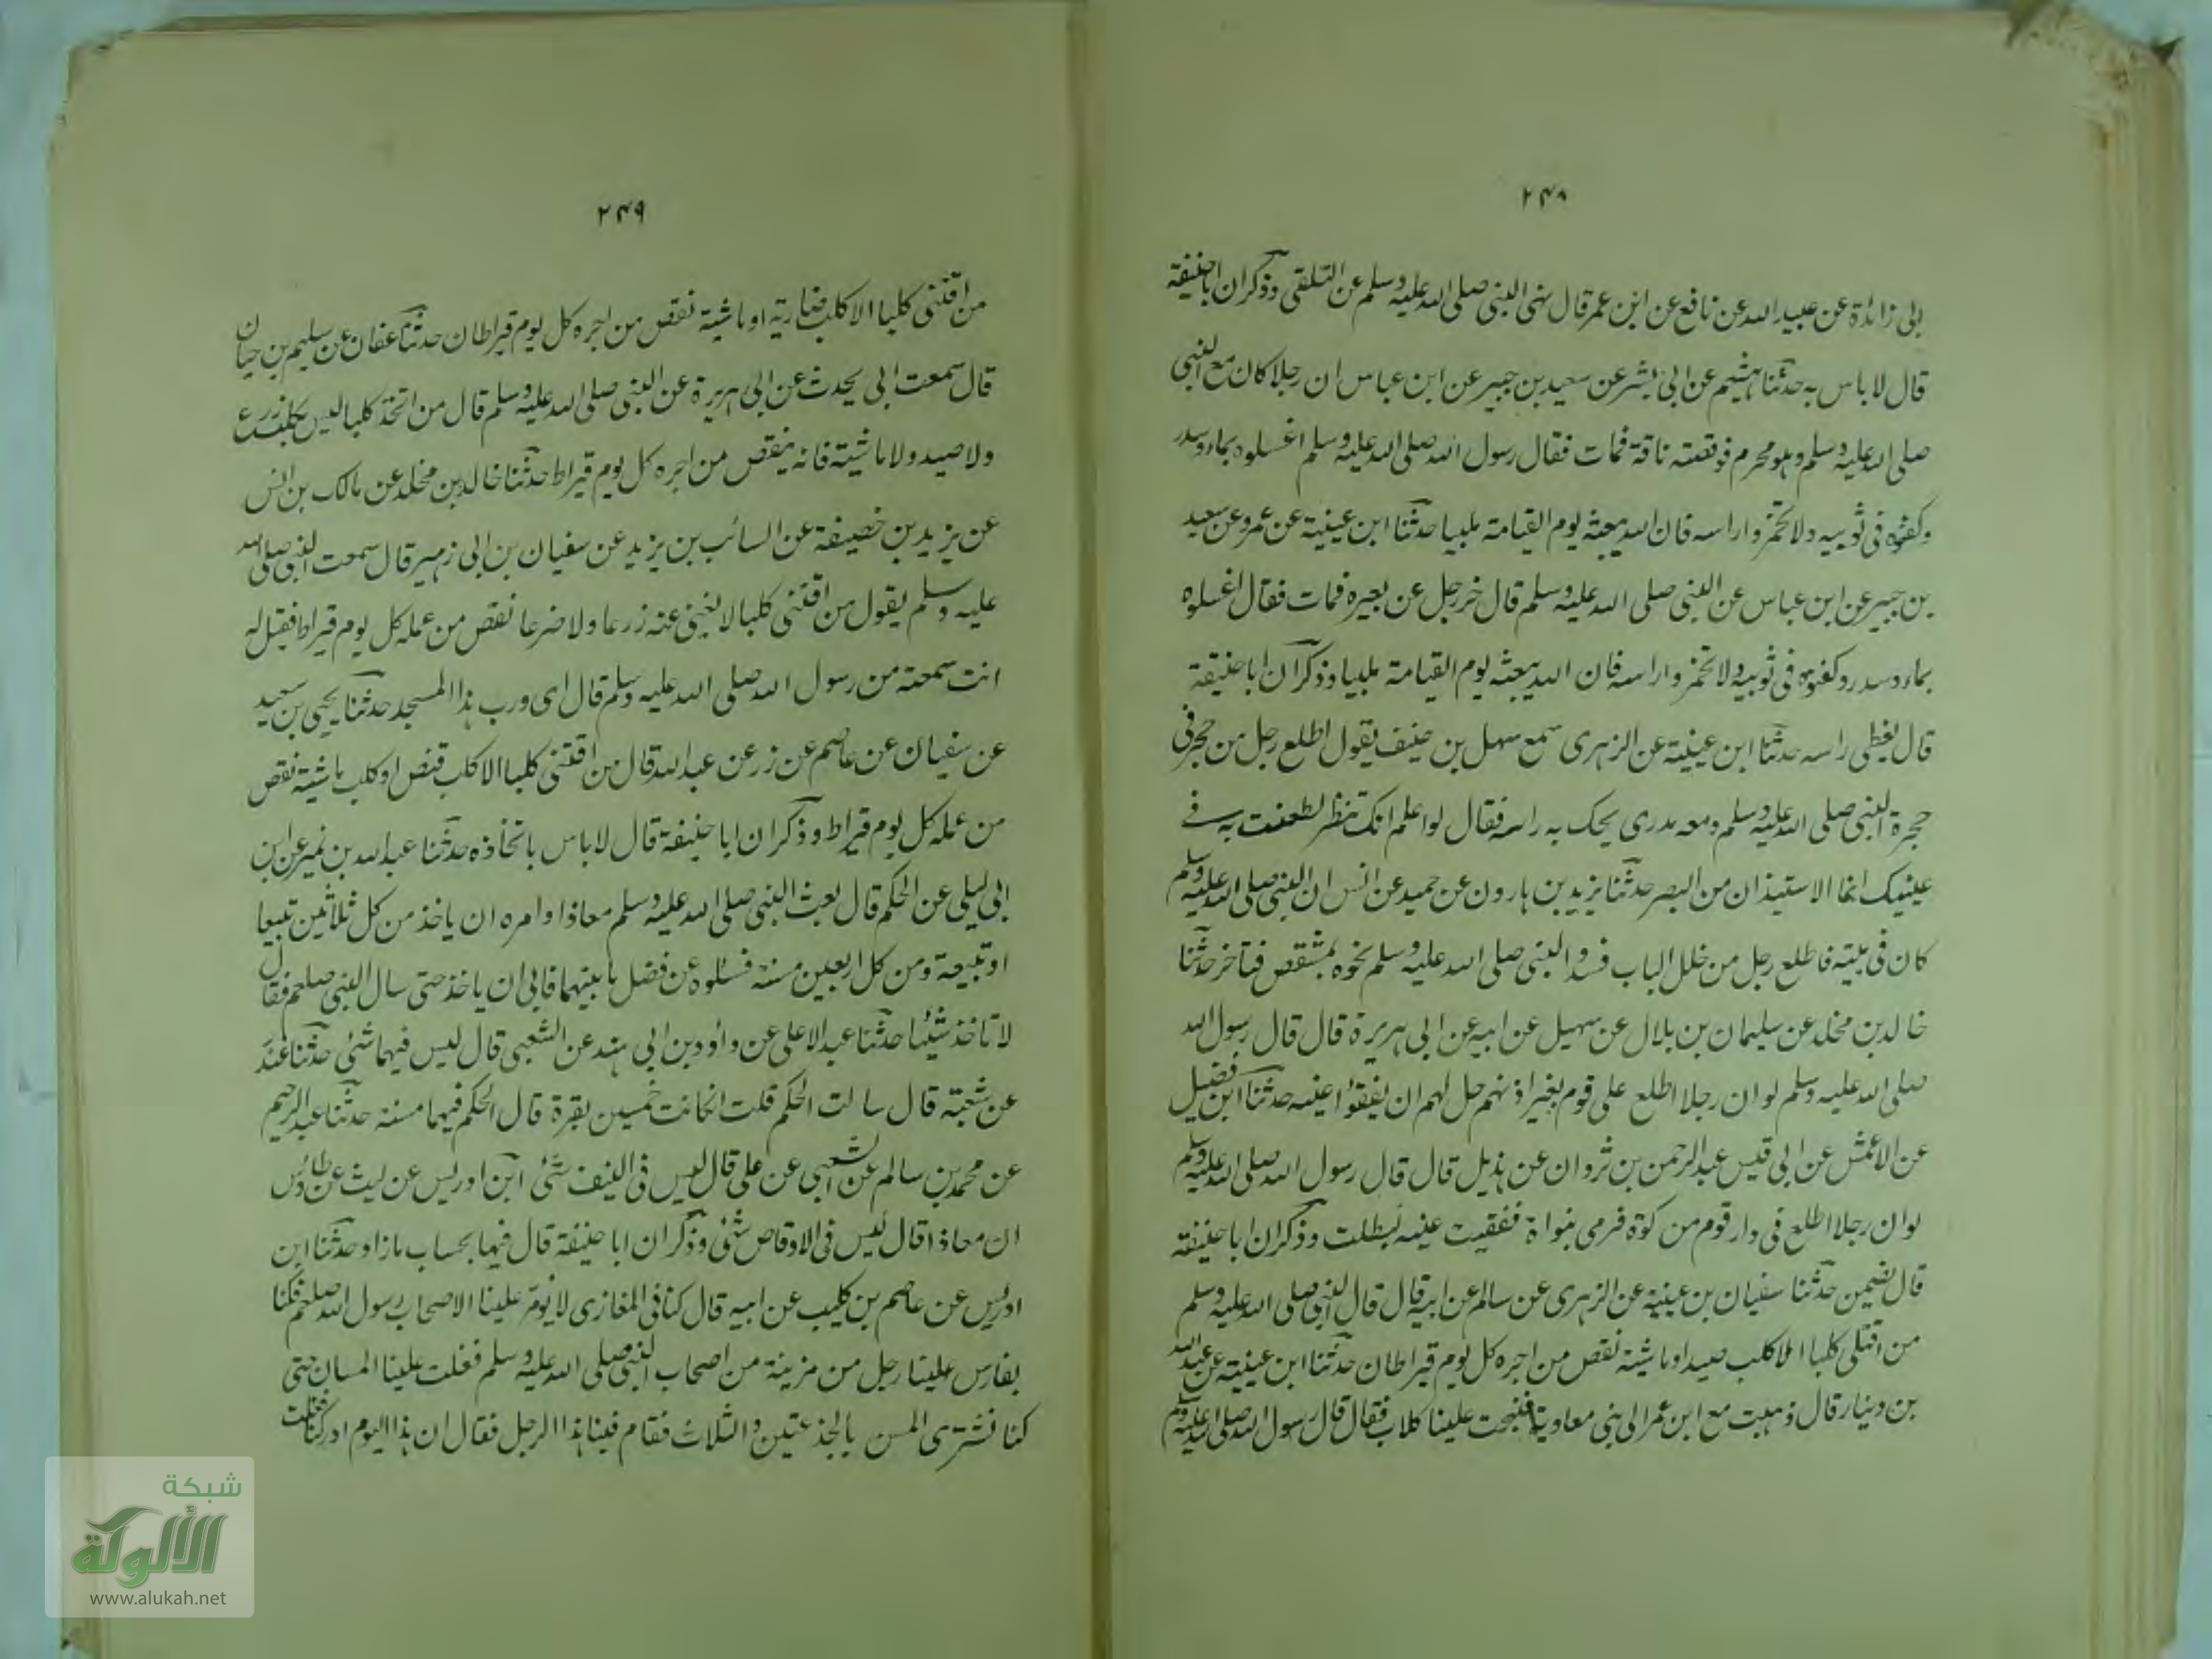 ٢٤٨
بى زائدة عن عبيد الله عن نافع عن ابن عمر قال نهى النبى صلى الله عليه وسلم عن التلقى وذكر ان ابا حنيفة
قال لا باس به حدثنا هشيم عن ابى بشر عن سعيد بن جبير عن ابن عباس ان رجلا كان مع النبى
صلى الله عليه وسلم وهو محرم فوقصته ناقة فمات فقال رسول الله صلى الله عليه وسلم اغسلوه بماء وسدر
وكفنوه فى ثوبيه ولا تخمروا راسه فان الله يبعثه يوم القيامة ملبيا حدثنا ابن عيينة عن عمرو عن سعيد
بن جبير عن ابن عباس عن النبى صلى الله عليه وسلم قال خر رجل عن بعيره فمات فقال اغسلوه
بماء وسدر وكفنوه فى ثوبيه ولا تخمروا راسه فان الله يبعثه يوم القيامة ملبيا وذكر ان ابا حنيفة
قال يغطى راسه حدثنا ابن عيينة عن الزهرى سمع سهل بن حنيف يقول اطلع رجل من حجر فى
حجرة النبى صلى الله عليه وسلم ومعه مدرى يحك به راسه فقال لو اعلم انك تنظر لطعنت به فے
عينيك انما الاستيذان من البصر حدثنا يزيد بن هارون عن حميد عن انس ان النبى صلى الله عليه وسلم
كان فى بيته فاطلع رجل من خلل الباب فسدد النبى صلى الله عليه وسلم نحوه بمشقص فتاخر حدثنا
خالد بن مخلد عن سليمان بن بلال عن سهيل عن ابيه عن ابى هريرة قال قال رسول الله
صلى الله عليه وسلم لو ان رجلا اطلع على قوم بغير اذنهم حل لهم ان يفقؤا عينه حدثنا ابن فضيل
عن الاعمش عن ابى قيس عبد الرحمن بن ثروان عن هذيل قال قال رسول الله صلى الله عليه وسلم
لو ان رجلا اطلع فى دار قوم من كوة فرمى بنواة ففقيت عينه لبطلت وذكر ان ابا حنيفة
قال يضمن حدثنا سفيان بن عيينة عن الزهرى عن سالم عن ابيه قال قال النبى صلى الله عليه وسلم
من اقتنى كلبا الا كلب صيد او ماشية نقص من اجره كل يوم قيراطان حدثنا ابن عيينة عن عبد الله
بن دينار قال ذهبت مع ابن عمر الى بنى معاوية فنبحت علينا كلاب فقال قال رسول الله صلى الله عليه وسلم
٢٤٩
من اقتنى كلبا الا كلب ضارية او ماشية نقص من اجره كل يوم قيراطان حدثنا عفان عن سليم بن حيان
قال سمعت ابى يحدث عن ابى هريرة عن النبى صلى الله عليه وسلم قال من اتخذ كلبا ليس بكلب زرع
ولا صيد ولا ماشية فانه ينقص من اجره كل يوم قيراط حدثنا خالد بن مخلد عن مالك بن انس
عن يزيد بن خصيفة عن السائب بن يزيد عن سفيان بن ابى زهير قال سمعت النبى صلى الله
عليه وسلم يقول من اقتنى كلبا لا يغنى عنه زرعا ولا ضرعا نقص من عمله كل يوم قيراط فقيل له
انت سمعته من رسول الله صلى الله عليه وسلم قال اى ورب هذا المسجد حدثنا يحيى بن سعيد
عن سفيان عن عاصم عن زر عن عبد الله قال من اقتنى كلبا الا كلب قنص او كلب ماشية نقص
من عمله كل يوم قيراط وذكر ان ابا حنيفة قال لا باس باتخاذه حدثنا عبد الله بن نمير عن ابن
ابى ليلى عن الحكم قال بعث النبى صلى الله عليه وسلم معاذا وامره ان ياخذ من كل ثلاثين تبيعا
او تبيعة ومن كل اربعين مسنة فسئلوه عن فضل ما بينهما فابى ان ياخذ حتى سال النبى صلعم فقال
لا تاخذ شيئا حدثنا عبد الاعلى عن داؤد بن ابى هند عن الشعبى قال ليس فيهما شئ حدثنا غندر
عن شعبة قال سالت الحكم قلت انكانت خمسين بقرة قال الحكم فيها مسنة حدثنا عبد الرحيم
عن محمد بن سالم عن الشعبى عن على قال ليس فى النيف شئ ابن ادريس عن ليث عن طاؤس
ان معاذا قال ليس فى الاوقاص شئ وذكر ان ابا حنيفة قال فيها بحساب مازاد حدثنا ابن
ادريس عن عاصم بن كليب عن ابيه قال كنا فى المغازى لا يؤمر علينا الا صحاب رسول الله صلعم فكنا
بفارس علينا رجل من مزينة من اصحاب النبى صلى الله عليه وسلم فغلت علينا المسان حتى
كنا نشترى المسن بالجذعتين والثلاث فقام فينا هذا الرجل فقال ان هذا اليوم ادركنا
شبكة
الألوكة
www.alukah.net